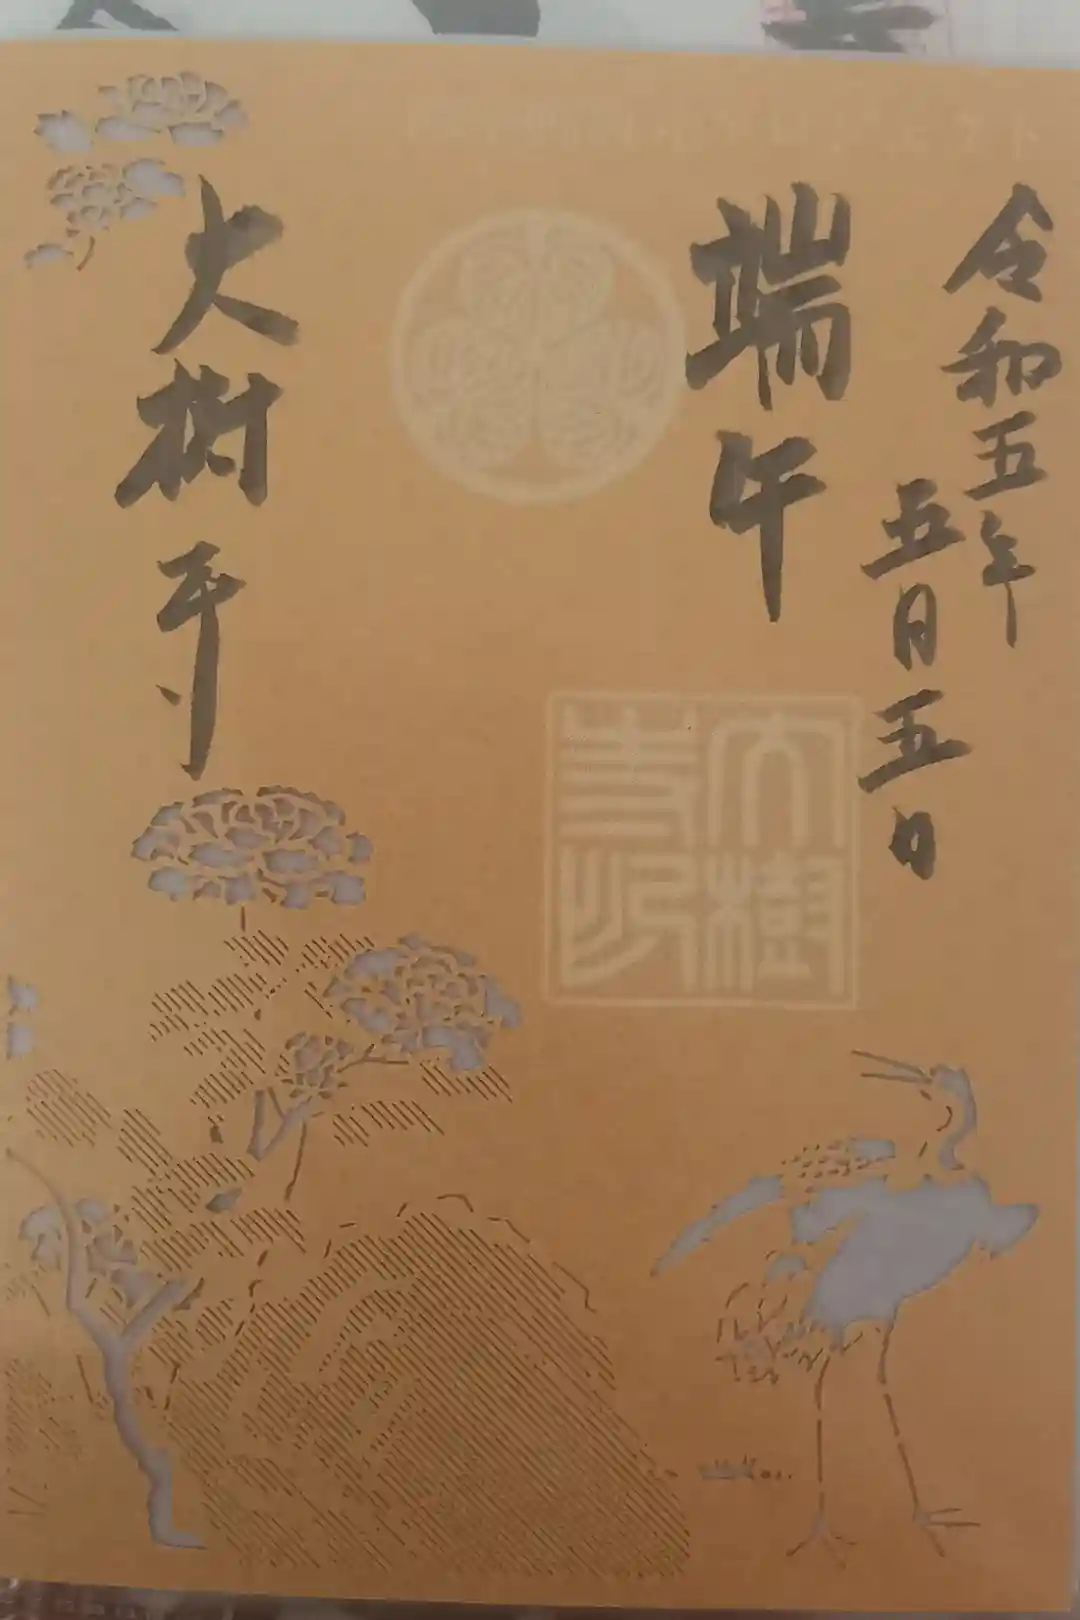 令和五年
五月五日
端午
大樹寺
大樹寺印